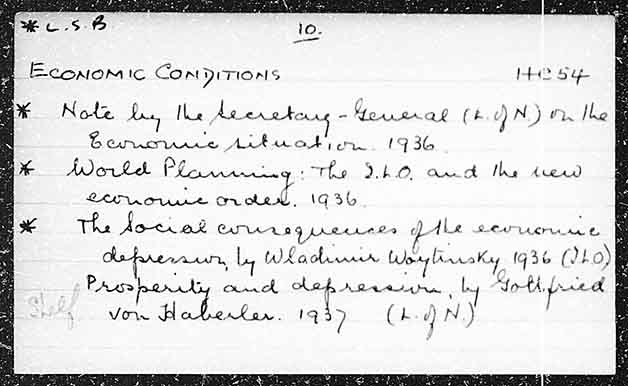 * L.S.B 10.
ECONOMIC CONDITIONS HC54
* Note by the Secretary-General (L. of N.) on the
Economic situation. 1936.
* World Planning: The I.L.O. and the new
economic order. 1936.
* The Social consequences of the economic
depression, by Wladimir Woytinsky 1936 (ILO)
Prosperity and depression, by Gottfried
Shelf von Haberler. 1937 (L. of N.)